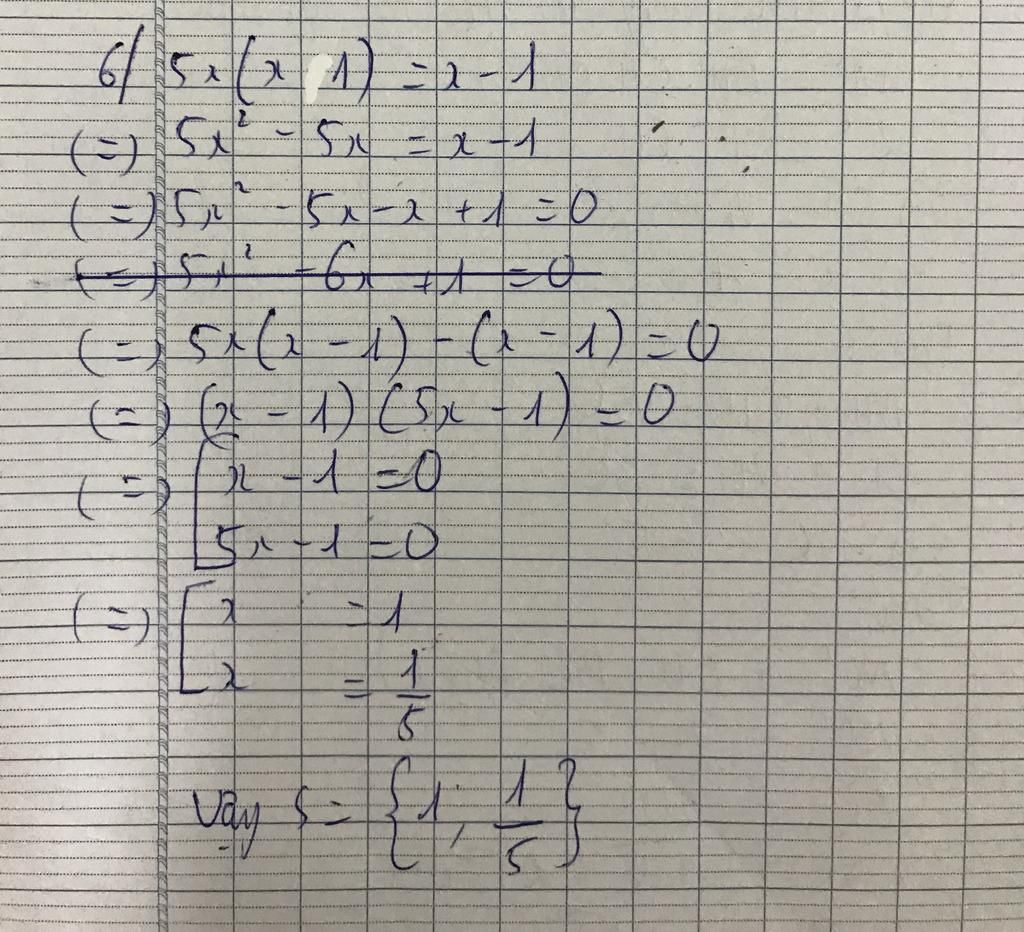 6/ 5x(x 1) = x - 1
(=) 5x² - 5x = x - 1
(=) 5x² - 5x - x + 1 = 0
(=) 5x² - 6x + 1 = 0
(=) 5x(x - 1) - (x - 1) = 0
(=) (x - 1) (5x - 1) = 0
(=) [ x - 1 = 0
5x - 1 = 0
(=) [ x = 1
x = 1/5
Vậy S = {1, 1/5}